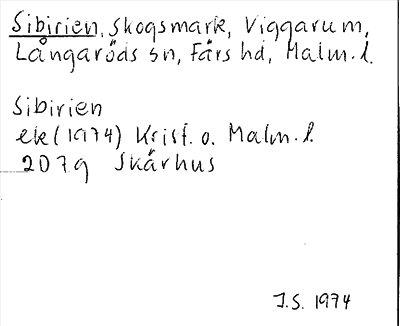 Sibirien, Skogsmark, Viggarum,
Långaröds sn, Färs hd, Malm. l.
Sibirien
ek (1974) Krist. o. Malm. l.
2D7g Skärhus
J.S. 1974